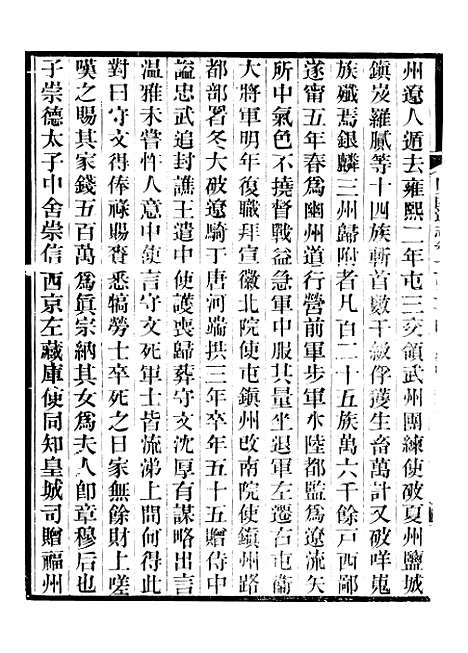 州遼人遁去雍熙二年屯三交領武州團練使破夏州鹽城
鎮岌羅膩等十四族斬首數千級俘獲生畜萬計又破咩嵬
族殲焉銀麟三州歸附者凡百二十五族萬六千餘戸西鄙
遂甯五年春爲幽州道行營前軍步軍水陸都監爲遼流矢
所中氣色不撓督戰益急軍中服其量坐退軍左遷右屯衞
大將軍明年復職拜宣徽北院使屯鎮州改南院使鎮州路
都部署冬大破遼騎于唐河端拱三年卒年五十五贈侍中
諡忠武追封譙王遣中使護喪歸葬守文沈厚有謀略出言
溫雅未嘗忤人意中使言守文死軍士皆流涕上問何得此
對曰守文得俸祿賜賚悉犒勞士卒死之日家無餘財上嗟
嘆之賜其家錢五百萬爲眞宗納其女爲夫人卽章穆后也
子崇德太子中舍崇信西京左藏庫使同知皇城司贈福州